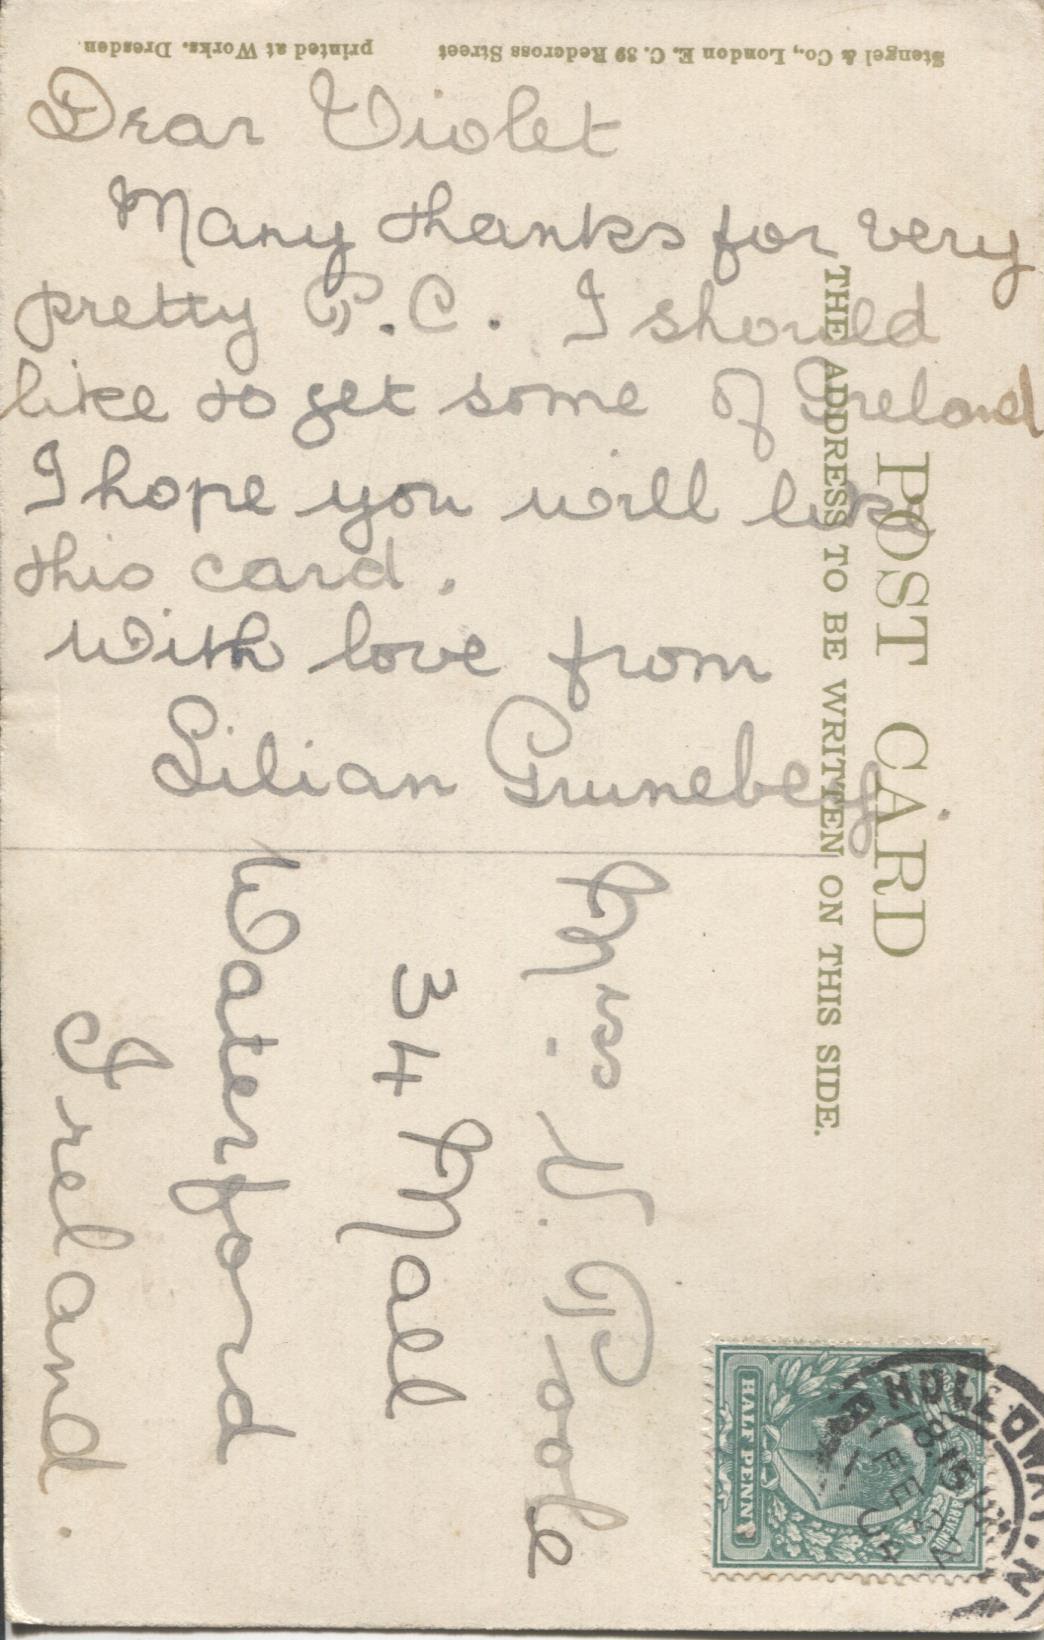 Stengel & Co., London E. C. 39 Redcross Street printed at Works. Dresden
Dear Violet
Many thanks for very
pretty P.C. I should
like to get some of Ireland
I hope you will like
this card.
With love from
Lilian Gruneberg.
POST CARD
THE ADDRESS TO BE WRITTEN ON THIS SIDE.
Miss V. Poole
34 Mall
Waterford
Ireland.
HALF PENNY
HOLLOWAY. N
8.15 PM
FE 2
04